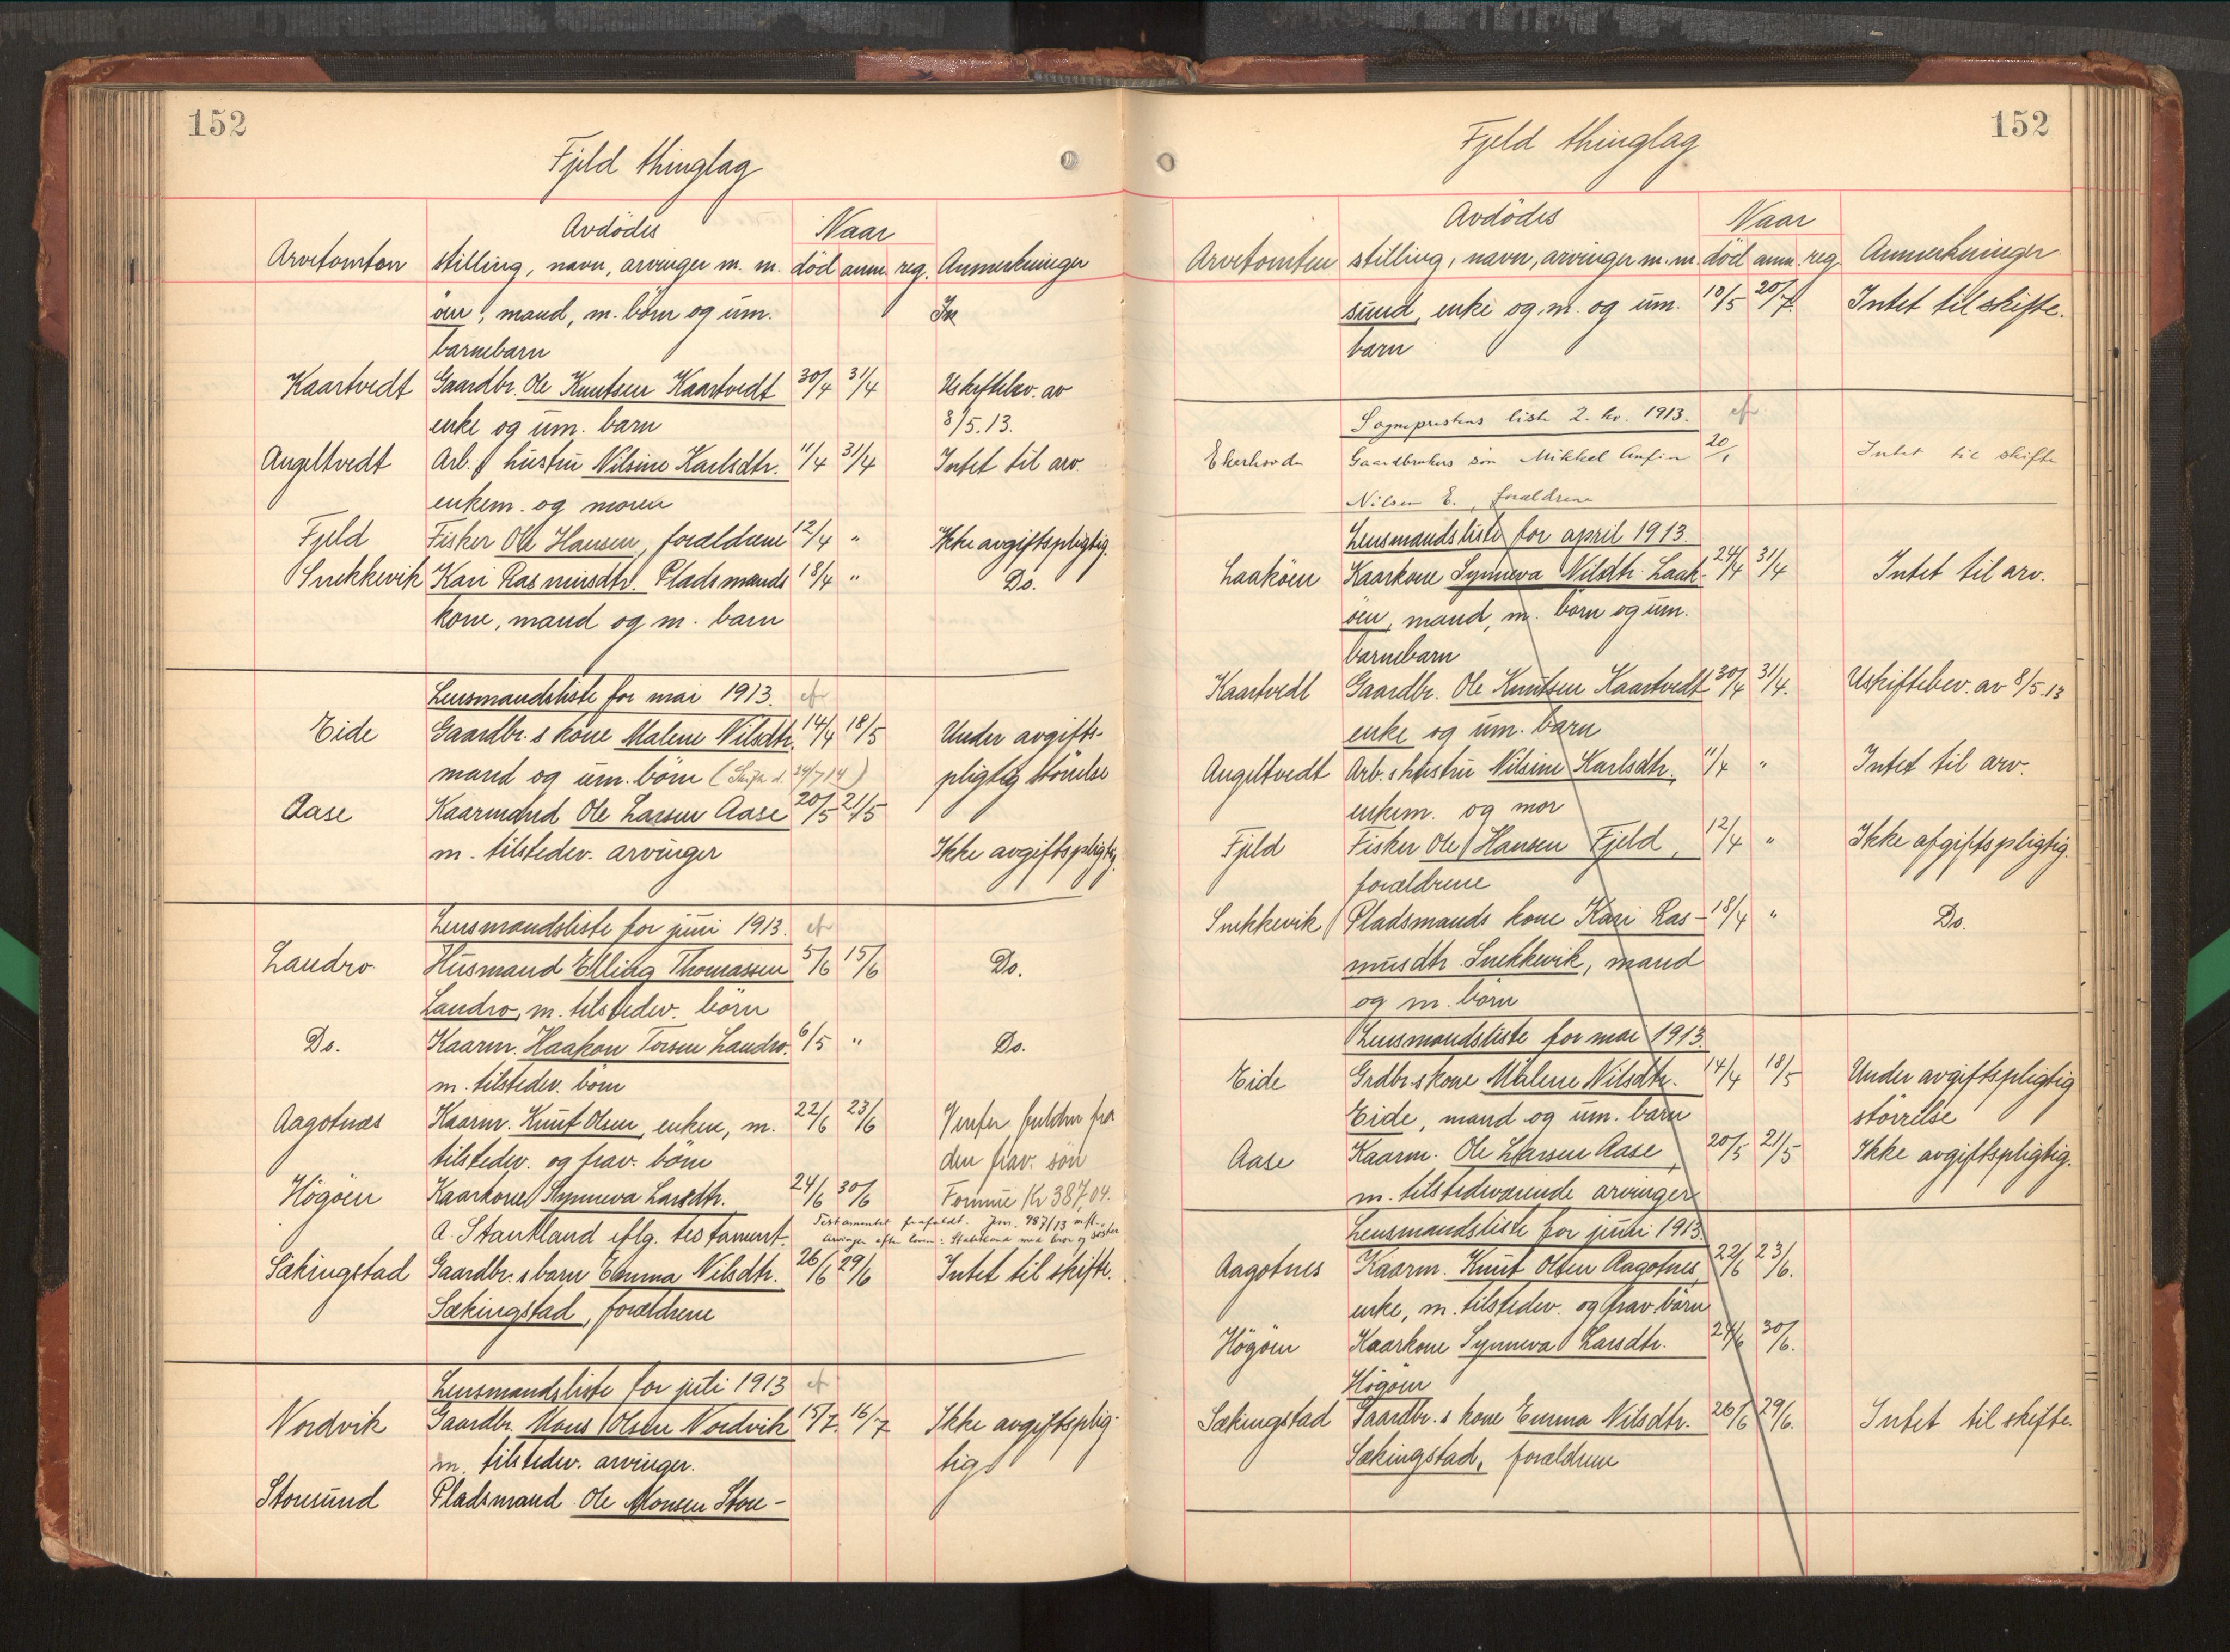 152
Fjeld thinglag
Avdödes Naar
Arvetomten stilling, navn, arvinger m. m. död anm. reg. Anmerkninger
öen, mand, m. börn og um. In
barnebarn
Kaartvedt Gaardbr. Ole Knutsen Kaartvedt 30/4 31/4 Uskiftebev. av
enke og um. barn 8/5.13.
Angeltvedt Arb.s hustru Nilsine Karlsdtr. 11/4 31/4 Intet til arv.
enkem. og moren
Fjeld Fisker Ole Hansen, forældrene 12/4 " Ikke avgiftspligtig.
Snekkevik Kari Rasmusdtr. Pladsmands 18/4 " Do.
kone, mand og m. barn
Lensmandsliste for mai 1913.
Eide Gaardbr.s kone Malene Nilsdtr. 14/4 18/5 Under avgifts-
mand og um. börn (Skifte d. 24/7 14) pligtig störrelse
Aase Kaarmand Ole Larsen Aase 20/5 21/5
m. tilstedev. arvinger Ikke avgiftspligtig.
Lensmandsliste for juni 1913.
Landro Husmand Elling Thomassen 5/6 15/6 Do.
Landro, m. tilstedev. börn
Do. Kaarm. Haakon Torsen Landro. 6/5 " Do.
m. tilstedev. börn
Aagotnæs Kaarm. Knut Olsen, enken, m. 22/6 23/6
tilstedev. og frav. börn den frav. sön
Högöen Kaarkone Synneva Larsdtr. 24/6 30/6 Formue Kr 387,04.
A. Stautland iflg. testament. Testamentet frafaldt. Jm. 987/13
Arvinger efter loven: med bror og söster
Sækingstad Gaardbr.s barn Emma Nilsdtr. 26/6 29/6 Intet til skifte.
Sækingstad, forældrene
Lensmandsliste for juli 1913
Nordvik Gaardbr. Mons Olsen Nordvik 15/7. 16/7 Ikke avgiftsplig-
m. tilstedev. arvinger. tig
Storesund Pladsmand Ole Monsen Store-
152
Fjeld thinglag
Avdödes Naar
Arvetomten stilling, navn, arvinger m. m. död anm. reg Anmerkninger.
sund, enke og m. og um. 10/5 20/7. Intet til skifte.
barn
Sogneprestens liste 2. kv. 1913.
Ekerhovda Gaardbrukers sön Mikkel Anfin 20/1 Intet til skifte
Nilsen E., forældrene
Lensmandsliste for april 1913.
Laaköen Kaarkone Synneva Nilsdtr. Laak- 24/4 31/4 Intet til arv.
öen, mand, m. börn og um.
barnebarn
Kaartvedt Gaardbr. Ole Knutsen Kaartvedt 30/4 31/4. Uskiftebev. av 8/5.13
enke og um. barn
Angeltvedt Arb.s hustru Nilsine Karlsdtr. 11/4 " Intet til arv.
enkem. og mor
Fjeld Fisker Ole Hansen Fjeld, 12/4 " Ikke afgiftspligtig.
forældrene
Snekkevik Pladsmands kone Kari Ras- 18/4 " Do.
musdtr. Snekkevik, mand
og m. börn
Lensmandsliste for mai 1913.
Eide Grdbr.s kone Malene Nilsdtr. 14/4 18/5 Under avgiftspligtig
Eide, mand og um. barn störrelse
Aase Kaarm. Ole Larsen Aase, 20/5 21/5 Ikke avgiftspligtig.
m. tilstedeværende arvinger
Lensmandsliste for juni 1913.
Aagotnes Kaarm. Knut Olsen Aagotnes, 22/6 23/6.
enke, m. tilstedev. og frav. börn
Högöen Kaarkone Synneva Larsdtr. 24/6 30/6.
Högöen
Sækingstad Gaardbr.s kone Emma Nilsdtr. 26/6 29/6. Intet til skifte.
Sækingstad, forældrene